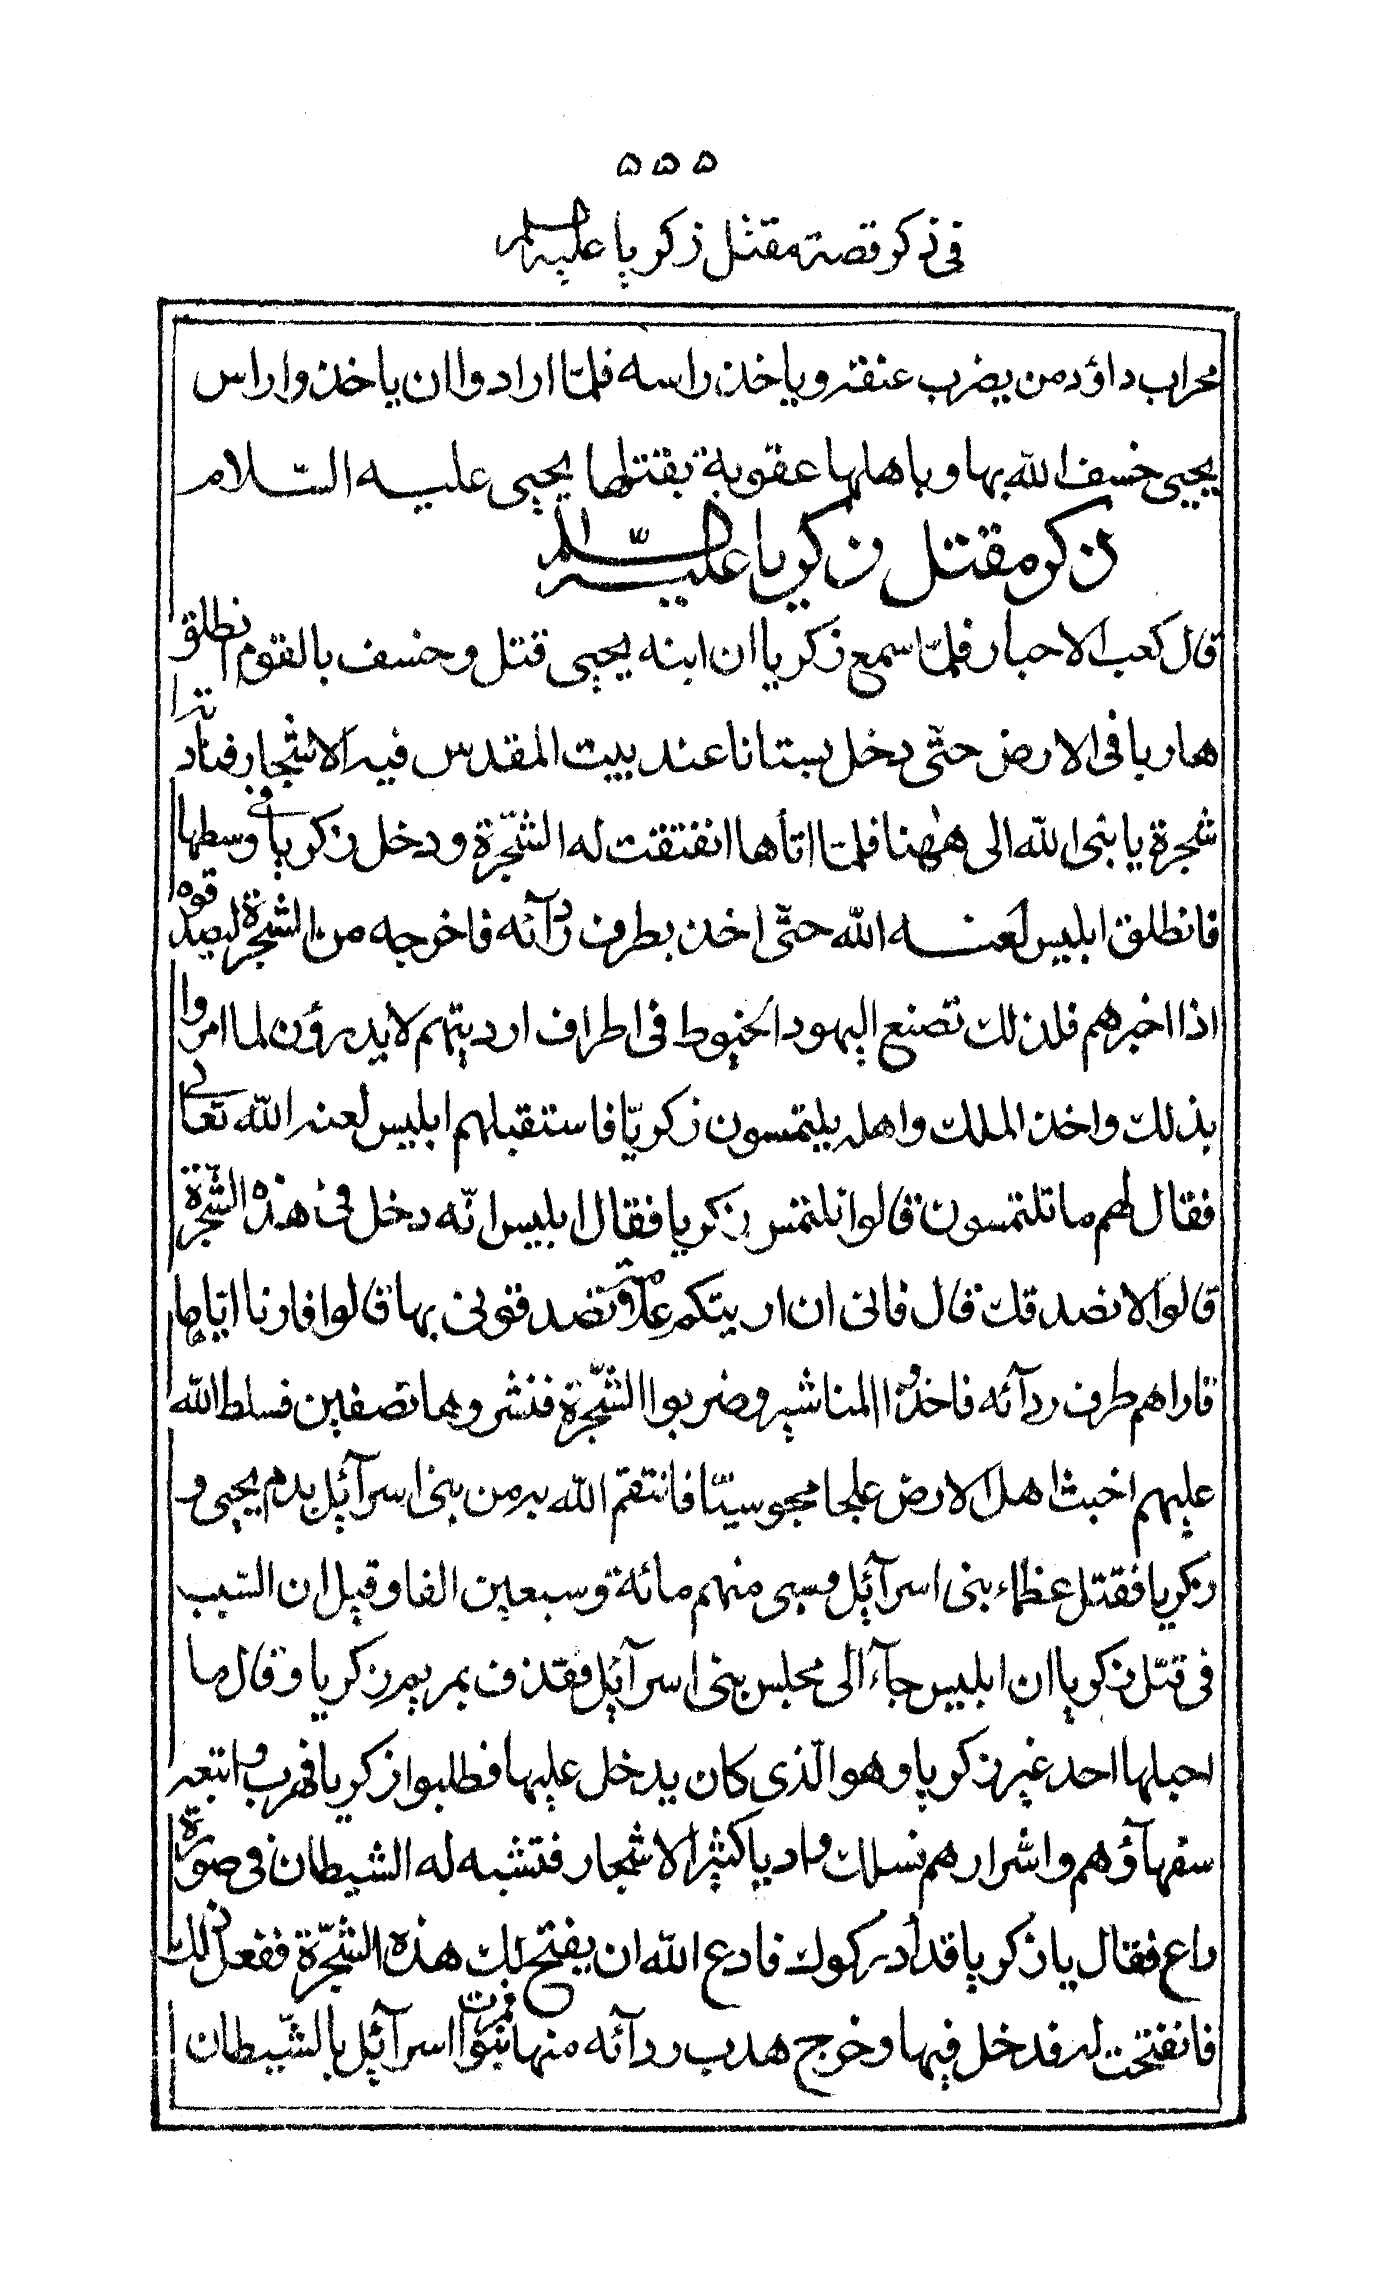 ۵۵۵
فی ذکر قصة مقتل زکریا علیه السلام
محراب داؤد من یضرب عنقه ویاخذ راسه فلمّا ارادوا ان یاخذوا راس
یحیی خسف الله بها وباهلها عقوبة بقتلها یحیی علیه السّلام
ذکر مقتل زکریا علیه السّلام
قال کعب الاحبار فلمّا سمع زکریا ان ابنه یحیی قتل وخسف بالقوم انطلق
هاربا فی الارض حتّی دخل بستانا عند بیت المقدس فیه الاشجار فنادته
شجرة یا نبی الله الی هٰهنا فلمّا اتأها انفتقت له الشّجرة ودخل زکریا فی وسطها
فانطلق ابلیس لعنه الله حتّی اخذ بطرف ردآئه فاخرجه من الشجرة لیصدقوه
اذا اخبرهم فلذلك تصنع الیهود الخیوط فی اطراف اردیتهم لا یدرؤن لما امروا
بذلك واخذ الملك واهله یلتمسون زکریّا فاستقبلهم ابلیس لعنه الله تعالی
فقال لهم ما تلتمسون قالوا نلتمس زکریا فقال ابلیس انّه دخل فی هذه الشّجرة
قالوا لا نصدقك قال فانی ان اریتکم علامة تصدقونی بها قالوا فارنا ایاها
فاراهم طرف ردآئه فاخذوا المناشیر وضربوا الشّجرة فنشروها نصفین فسلط الله
علیهم اخبث اهل الارض علجا مجوسیّا فانتقم الله به من بنی اسرآئیل بدم یحیی و
زکریا فقتل عظماء بنی اسرآئیل وسبی منهم مائة وسبعین الفا وقیل ان السّبب
فی قتل زکریا ان ابلیس جآء الی مجلس بنی اسرآئیل فقذف بمریم زکریا وقال ما
احبلها احد غیر زکریا وهو الّذی کان یدخل علیها فطلبوا زکریا فهرب واتبعه
سفهآؤهم واشرارهم فسلك وادیا کثیر الاشجار فتشبه له الشیطان فی صورة
راع فقال یا زکریا قد أدرکوك فادع الله ان یفتح لك هذه الشّجرة ففعل ذلك
فانفتحت له فدخل فیها وخرج هدب ردآئه منها فمرت بنوا اسرآئیل بالشّیطان